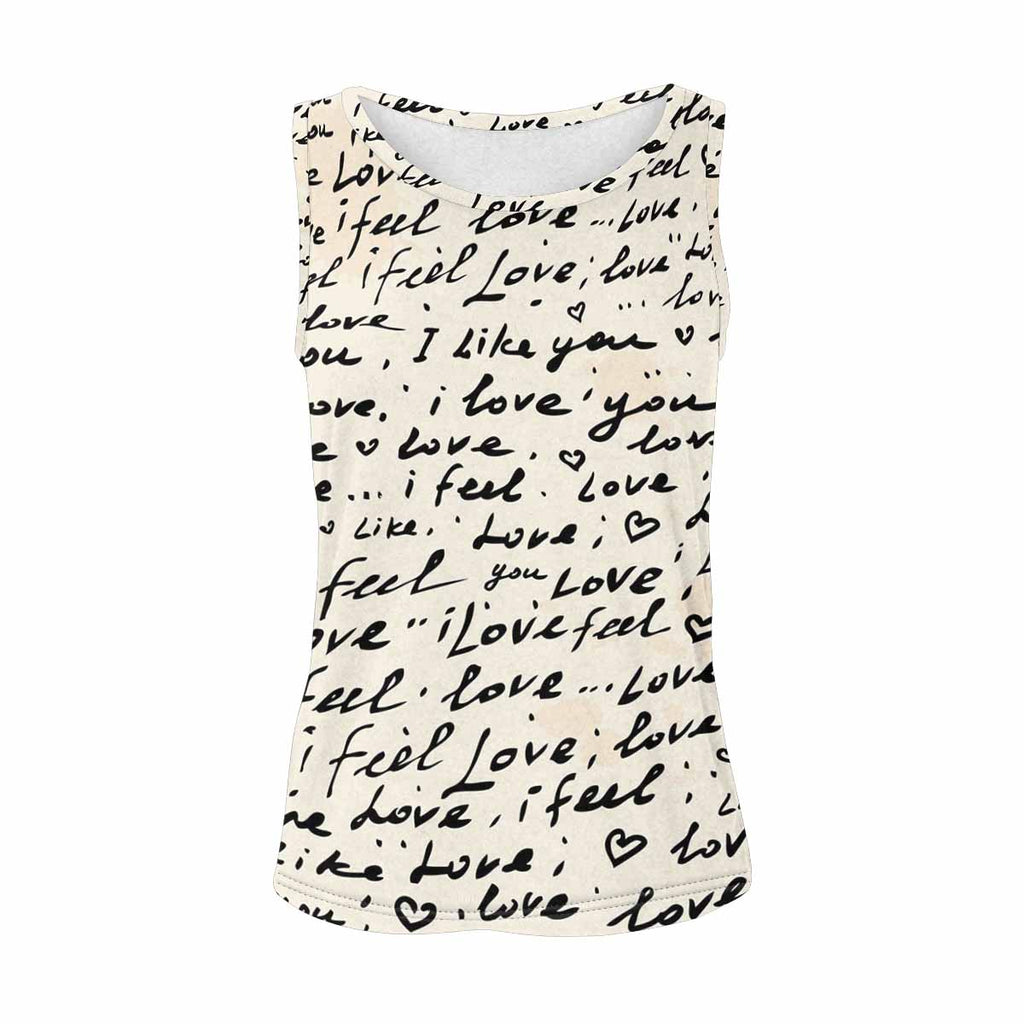 i feel
Love feel
you like
Love feel
i feel love ... Love.
i feel Love; love"
love ... love
I Like you
i love you
love. love
... i feel. Love
Like. Love;
feel you LOVE
ove " i Love feel
feel. love ... Love
i feel Love; love
Love, i feel
ike Love; lov
you; love love